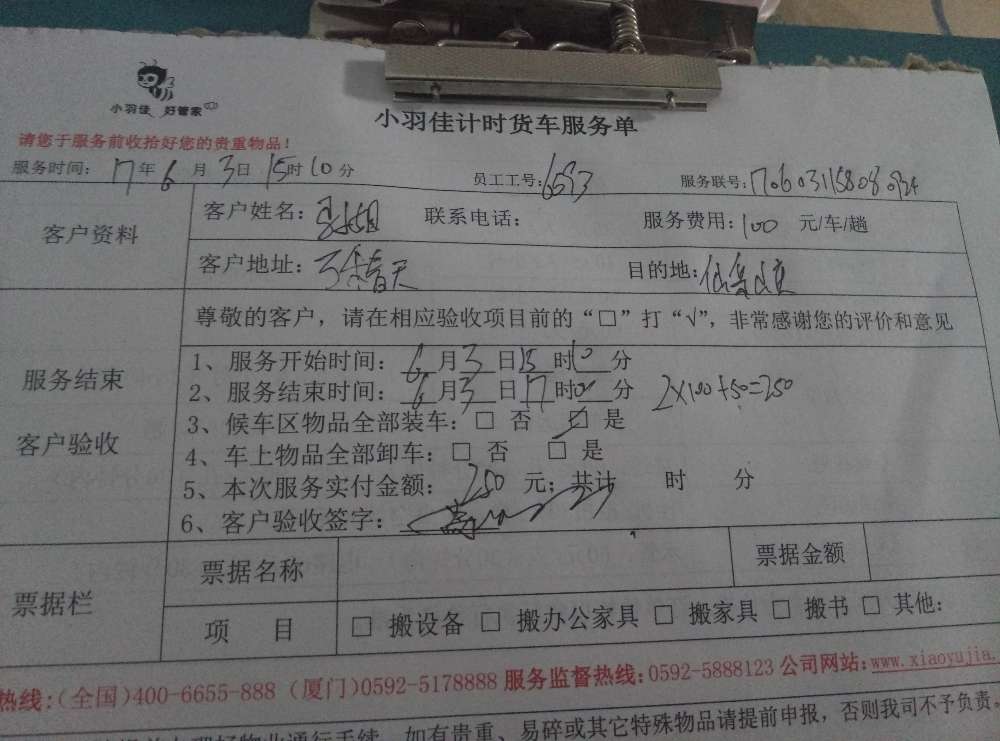 小羽佳 好管家
小羽佳计时货车服务单
请您于服务前收拾好您的贵重物品!
服务时间: 17年6月3日15时10分 员工工号:6693 服务联号:
客户资料
客户姓名: 联系电话: 服务费用:100 元/车/趟
客户地址: 目的地:
服务结束
客户验收
尊敬的客户，请在相应验收项目前的“□”打“√”，非常感谢您的评价和意见
1、服务开始时间: 6月3日15时10分
2、服务结束时间: 6月3日17时00分 2×100+50=250
3、候车区物品全部装车:□ 否 ☑ 是
4、车上物品全部卸车:□ 否 □ 是
5、本次服务实付金额: 250 元; 共计 时 分
6、客户验收签字:
票据栏
票据名称 票据金额
项 目 □ 搬设备 □ 搬办公家具 □ 搬家具 □ 搬书 □ 其他:
热线:(全国)400-6655-888 (厦门)0592-5178888 服务监督热线:0592-5888123 公司网站:www.xiaoyujia.
如有贵重、易碎或其它特殊物品请提前申报，否则我司不予负责。